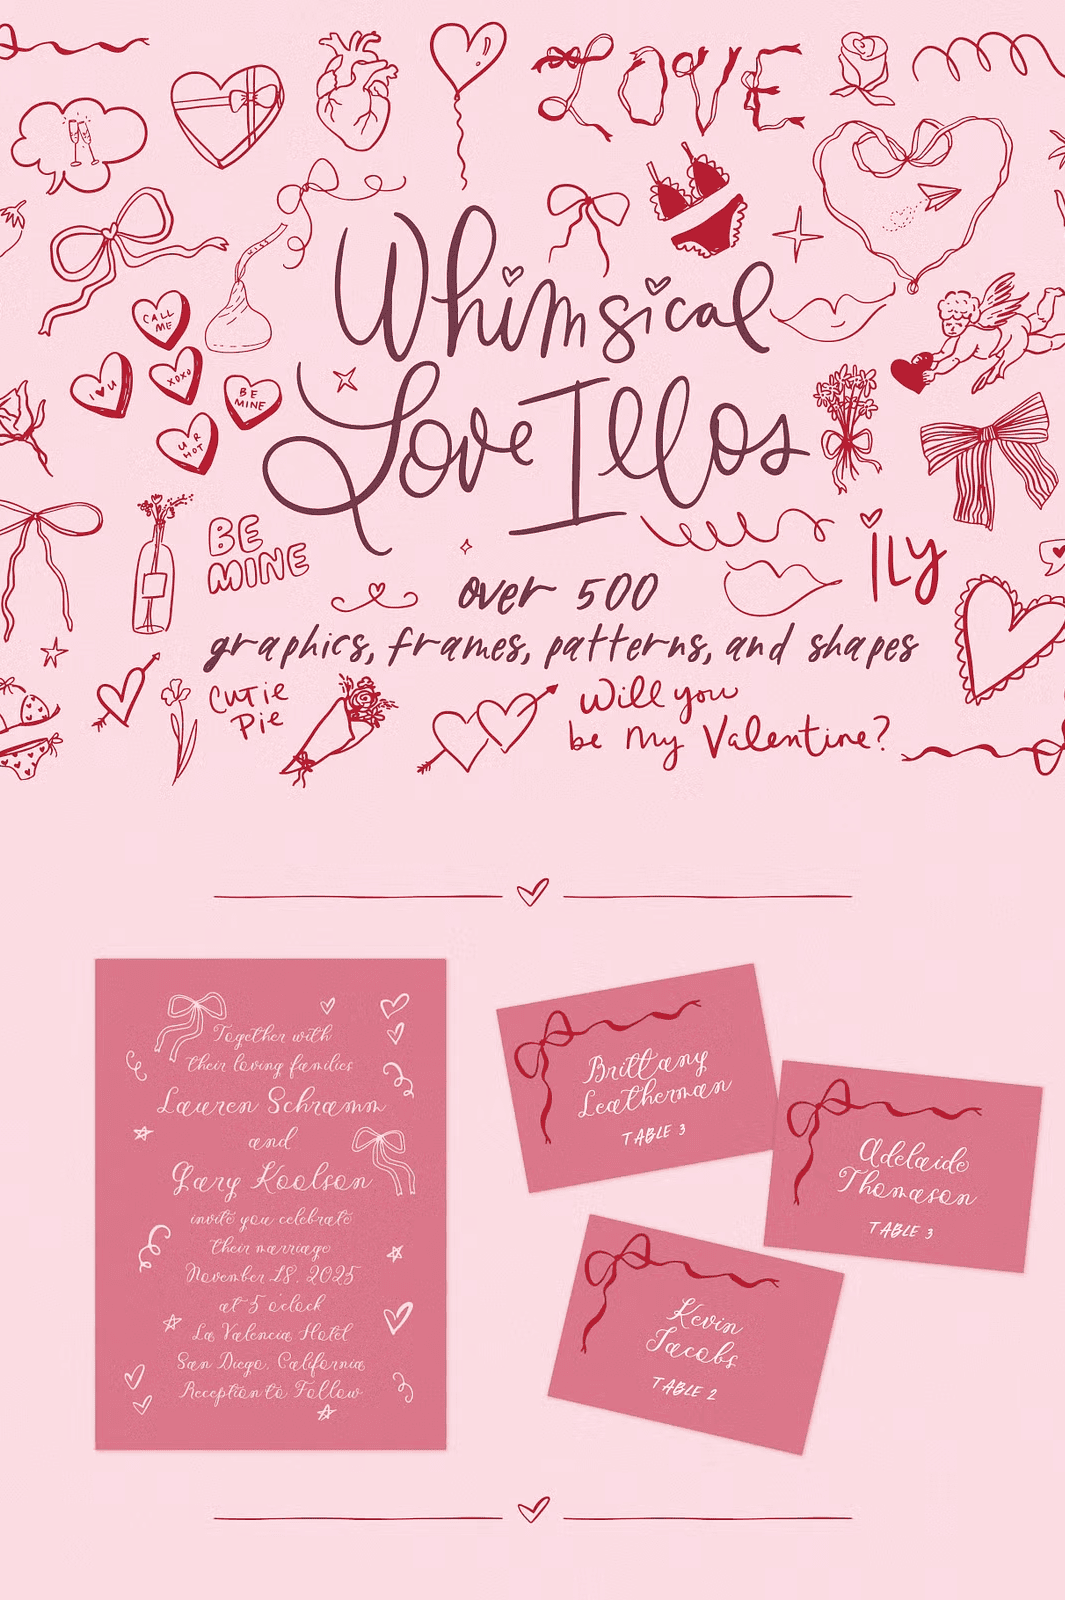 LOVE
Whimsical
Love Illos
CALL
ME
I ♥ U
XOXO
BE
MINE
U R
HOT
BE
MINE
ily
over 500
graphics, frames, patterns, and shapes
CUTiE
PiE
Will you
be my Valentine?
Together with
their loving families
Lauren Schramm
and
Gary Koolson
invite you celebrate
their marriage
November 18, 2025
at 5 o'clock
La Valencia Hotel
San Diego, California
Reception to Follow
Brittany
Leatherman
TABLE 3
Adelaide
Thomason
TABLE 3
Kevin
Jacobs
TABLE 2